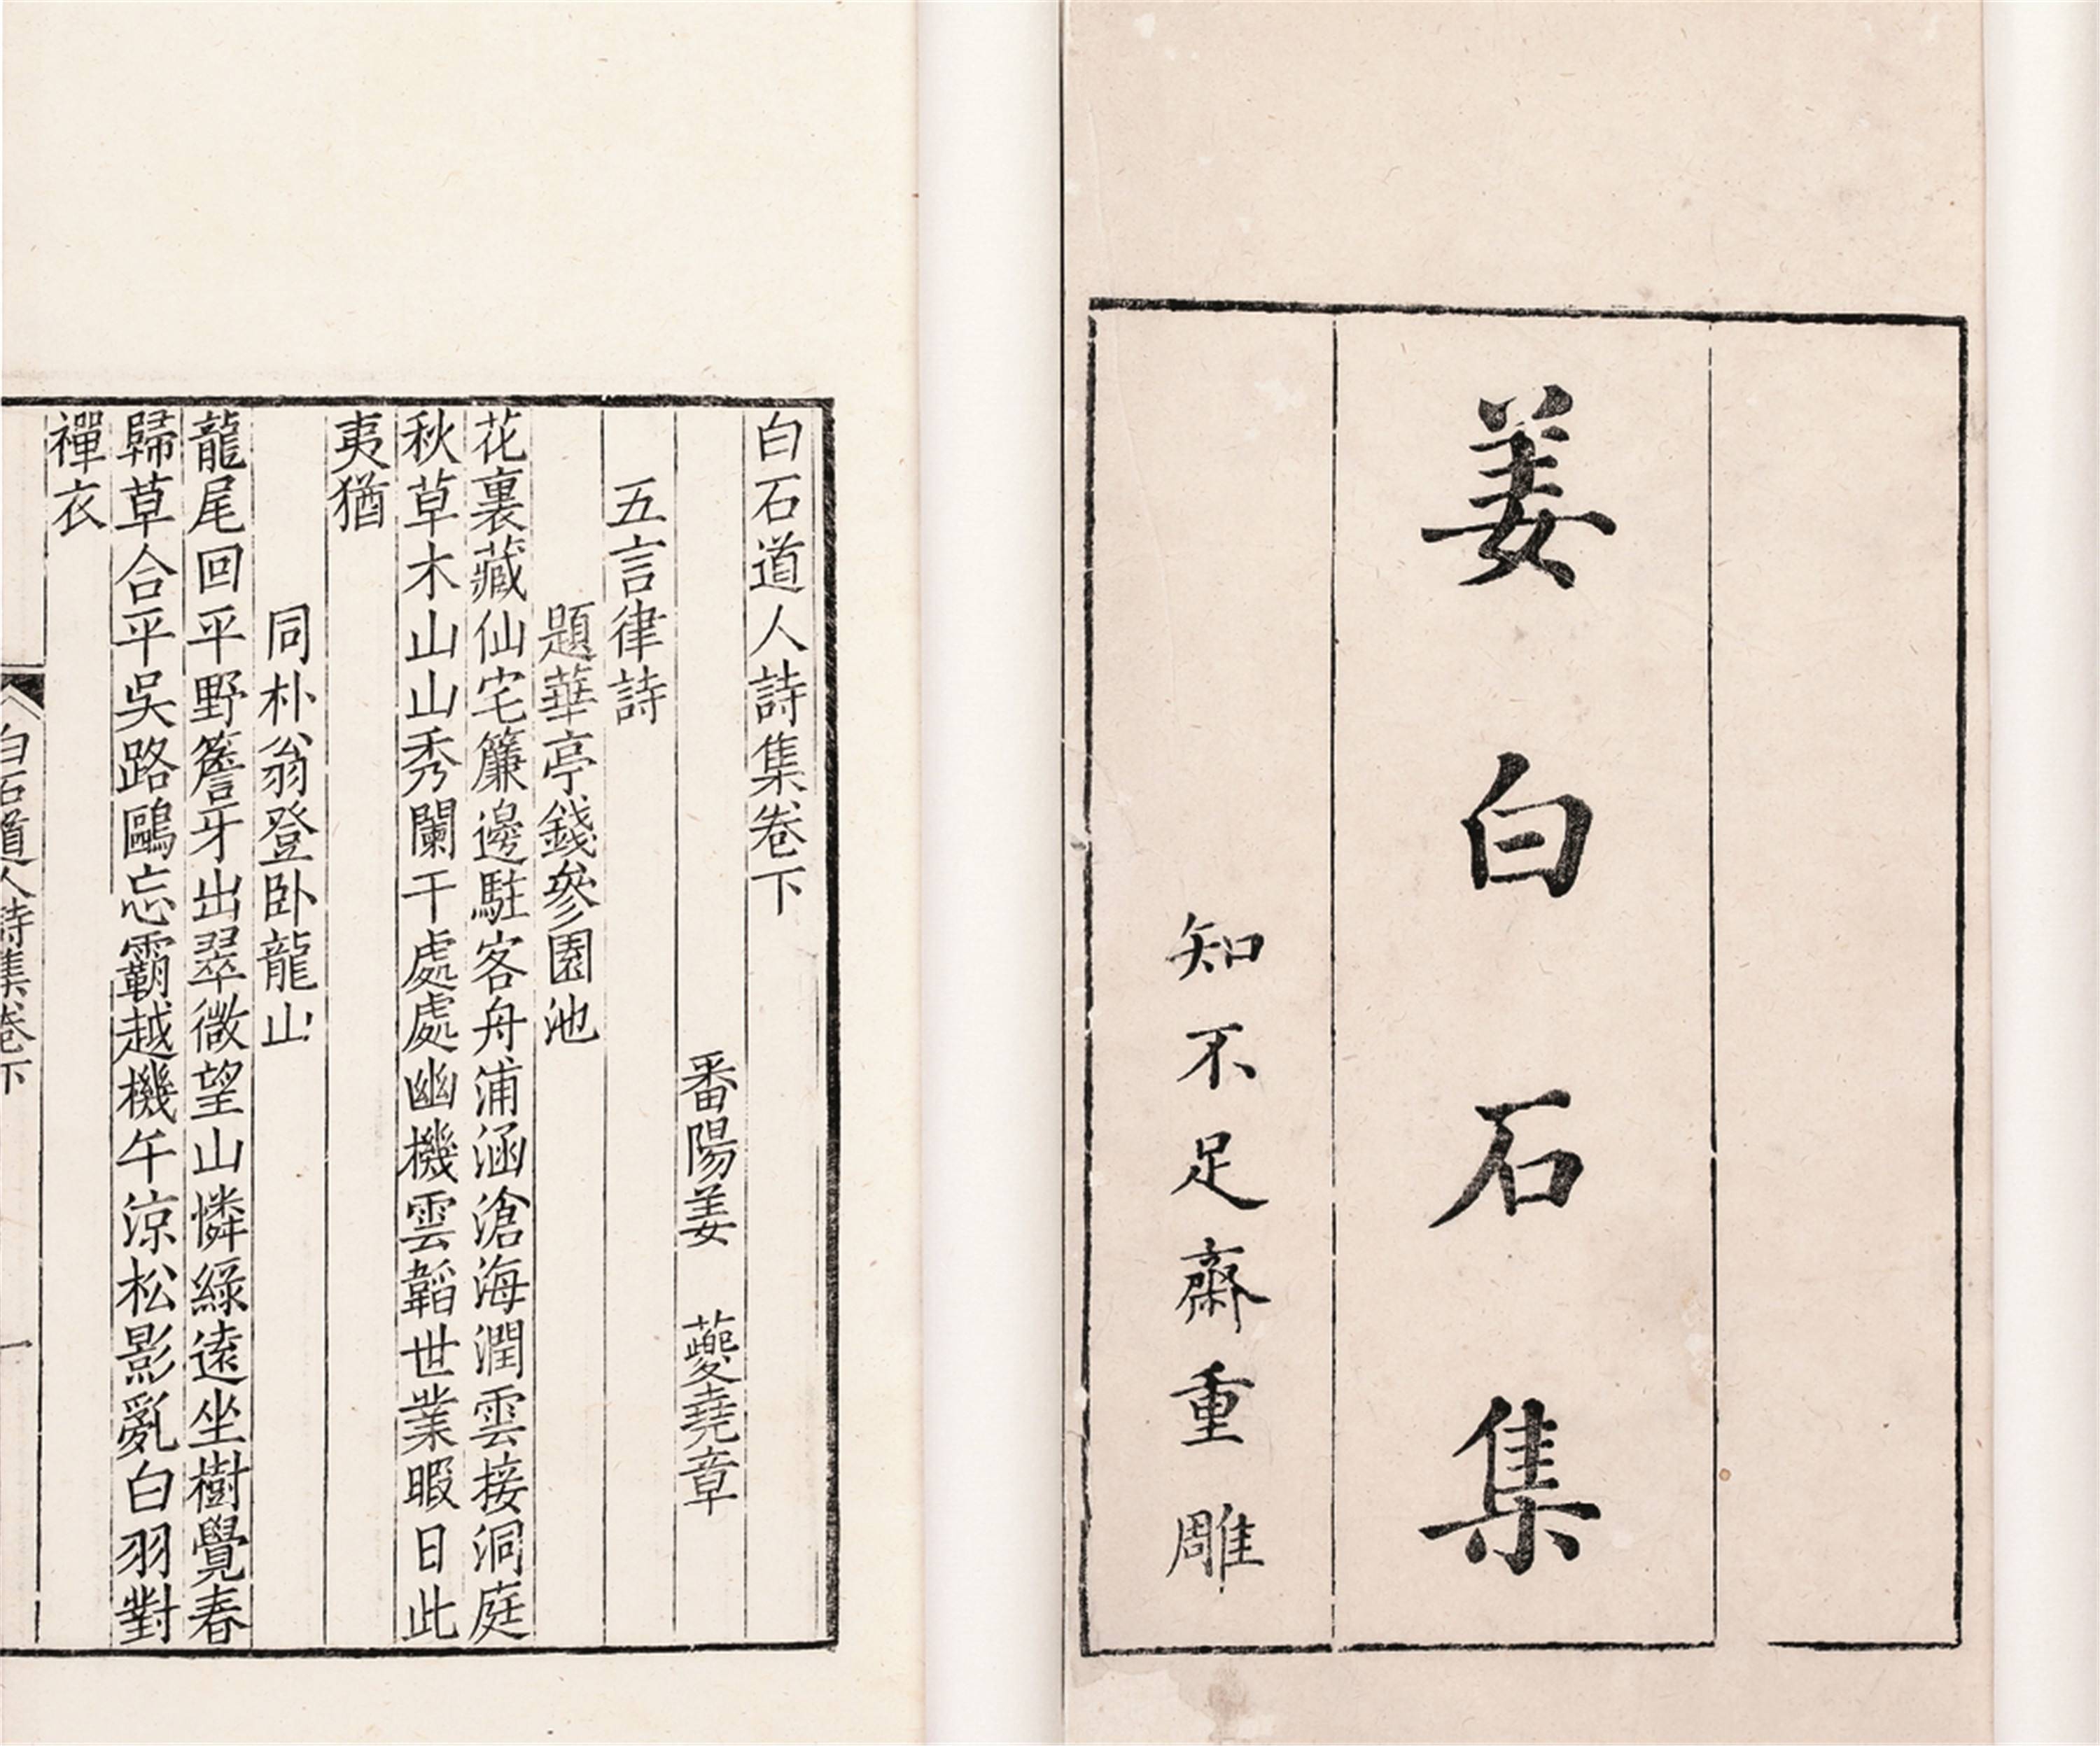 姜白石集
知不足齋重雕
白石道人詩集卷下
番陽姜 夔堯章
五言律詩
題華亭錢參園池
花裏藏仙宅簾邊駐客舟浦涵滄海潤雲接洞庭
秋草木山山秀闌干處處幽機雲韜世業暇日此
夷猶
同朴翁登卧龍山
龍尾回平野簷牙出翠微望山憐綠遠坐樹覺春
歸草合平吳路鷗忘霸越機午涼松影亂白羽對
禪衣
白石道人詩集卷下
一